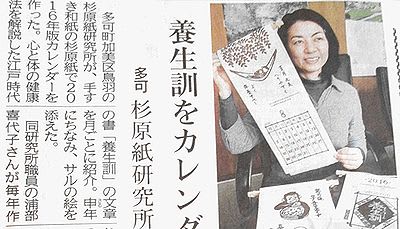 養生訓をカレンダ
多可 杉原紙研究所
多可町加美区鳥羽の
杉原紙研究所が、手す
き和紙の杉原紙で20
16年版カレンダーを
作った。心と体の健康
法を解説した江戸時代
の書「養生訓」の文章
を月ごとに紹介。申年
にちなみ、サルの絵を
添えた。
同研究所職員の浦部
喜代子さんが毎年作
8